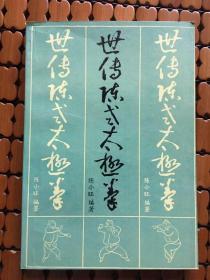 世传陈式太极拳
陈小旺 编著
世传陈式太极拳
陈小旺 编著
世传陈式太极拳
陈小旺 编著